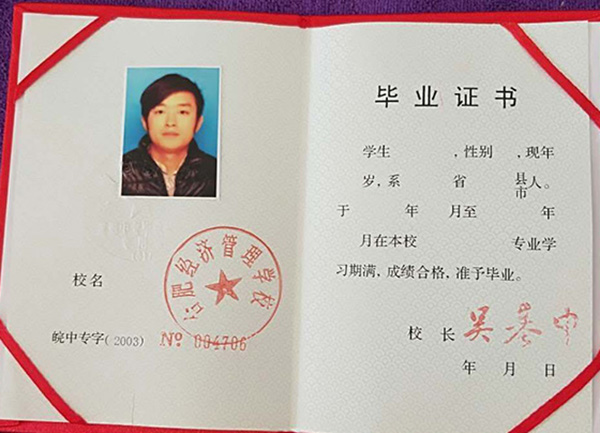 合肥经济管理学校
校名
皖中专字(2003) № 004706
毕业证书
学生 ,性别 ,现年
岁,系 省 县市人。
于 年 月至 年
月在本校 专业学
习期满,成绩合格,准予毕业。
校 长 吴
年 月 日